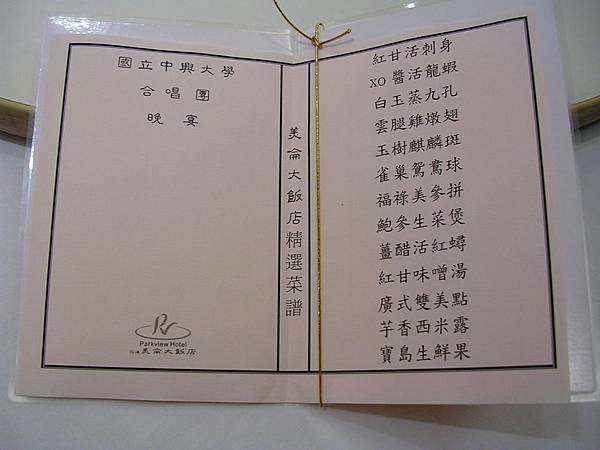 國立中興大學
合唱團
晚宴
Parkview Hotel
花蓮美侖大飯店
美侖大飯店精選菜譜
紅甘活刺身
XO醬活龍蝦
白玉蒸九孔
雲腿雞燉翅
玉樹麒麟斑
雀巢鴛鴦球
福祿美參拼
鮑參生菜煲
薑醋活紅蟳
紅甘味噌湯
廣式雙美點
芋香西米露
寶島生鮮果